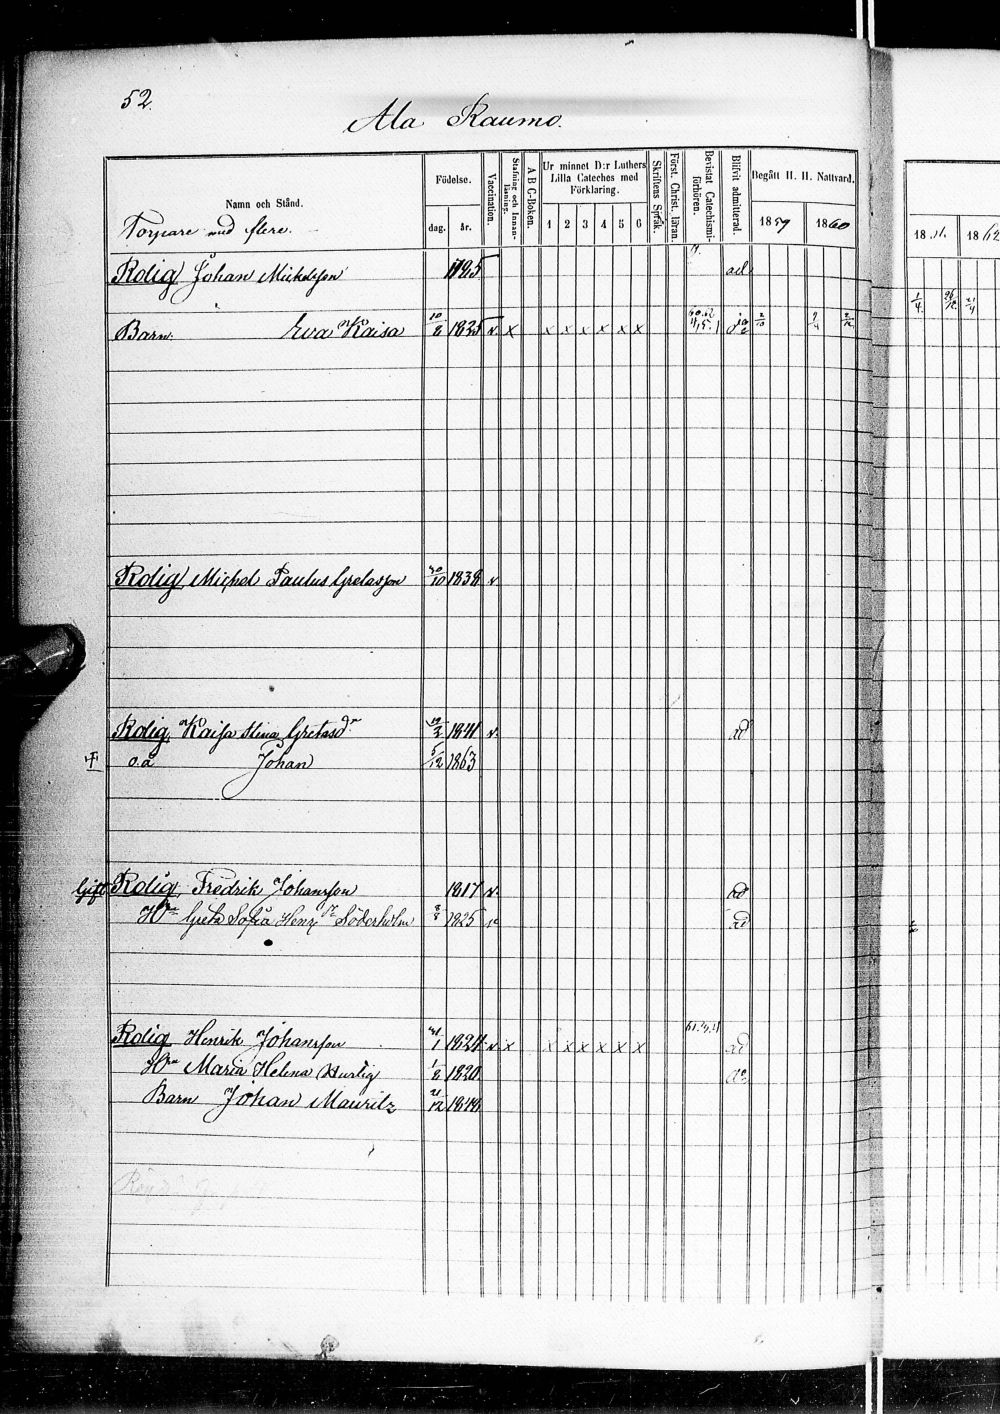 52.
Ala Raumo.
Namn och Stånd.
Torpare med flere.
Födelse.
dag. år.
Vaccination.
Stafning och Innanläsning.
A B C-Boken.
Ur minnet D:r Luthers Lilla Cateches med Förklaring.
1 2 3 4 5 6
Skriftens Språk.
Först. Christ. läran.
Bevistat Catechismiförhören.
Blifvit admitterad.
Begått H. H. Nattvard.
1859 1860
1861. 1862
Rolig Johan Mickelsson 1795 ad
Barn. Eva Kaisa 10/8 1835 v x x x x x x x
Rolig Michel Paulus Gretasson 30/10 1838 v
Rolig, Kaisa Stina Gretasdr 19/2 1841 v. ad
o.ä Johan 5/12 1863
Gift Rolig, Fredrik Johansson 1817 v. ad
Hu Greta Sofia Henr Söderholm 8/8 1825 ad
Rolig Henrik Johansson 31/1 1824 v x x x x x x x ad
Hu Maria Helena Hurtig 1/8 1820 do
Barn Johan Mauritz 21/12 1848